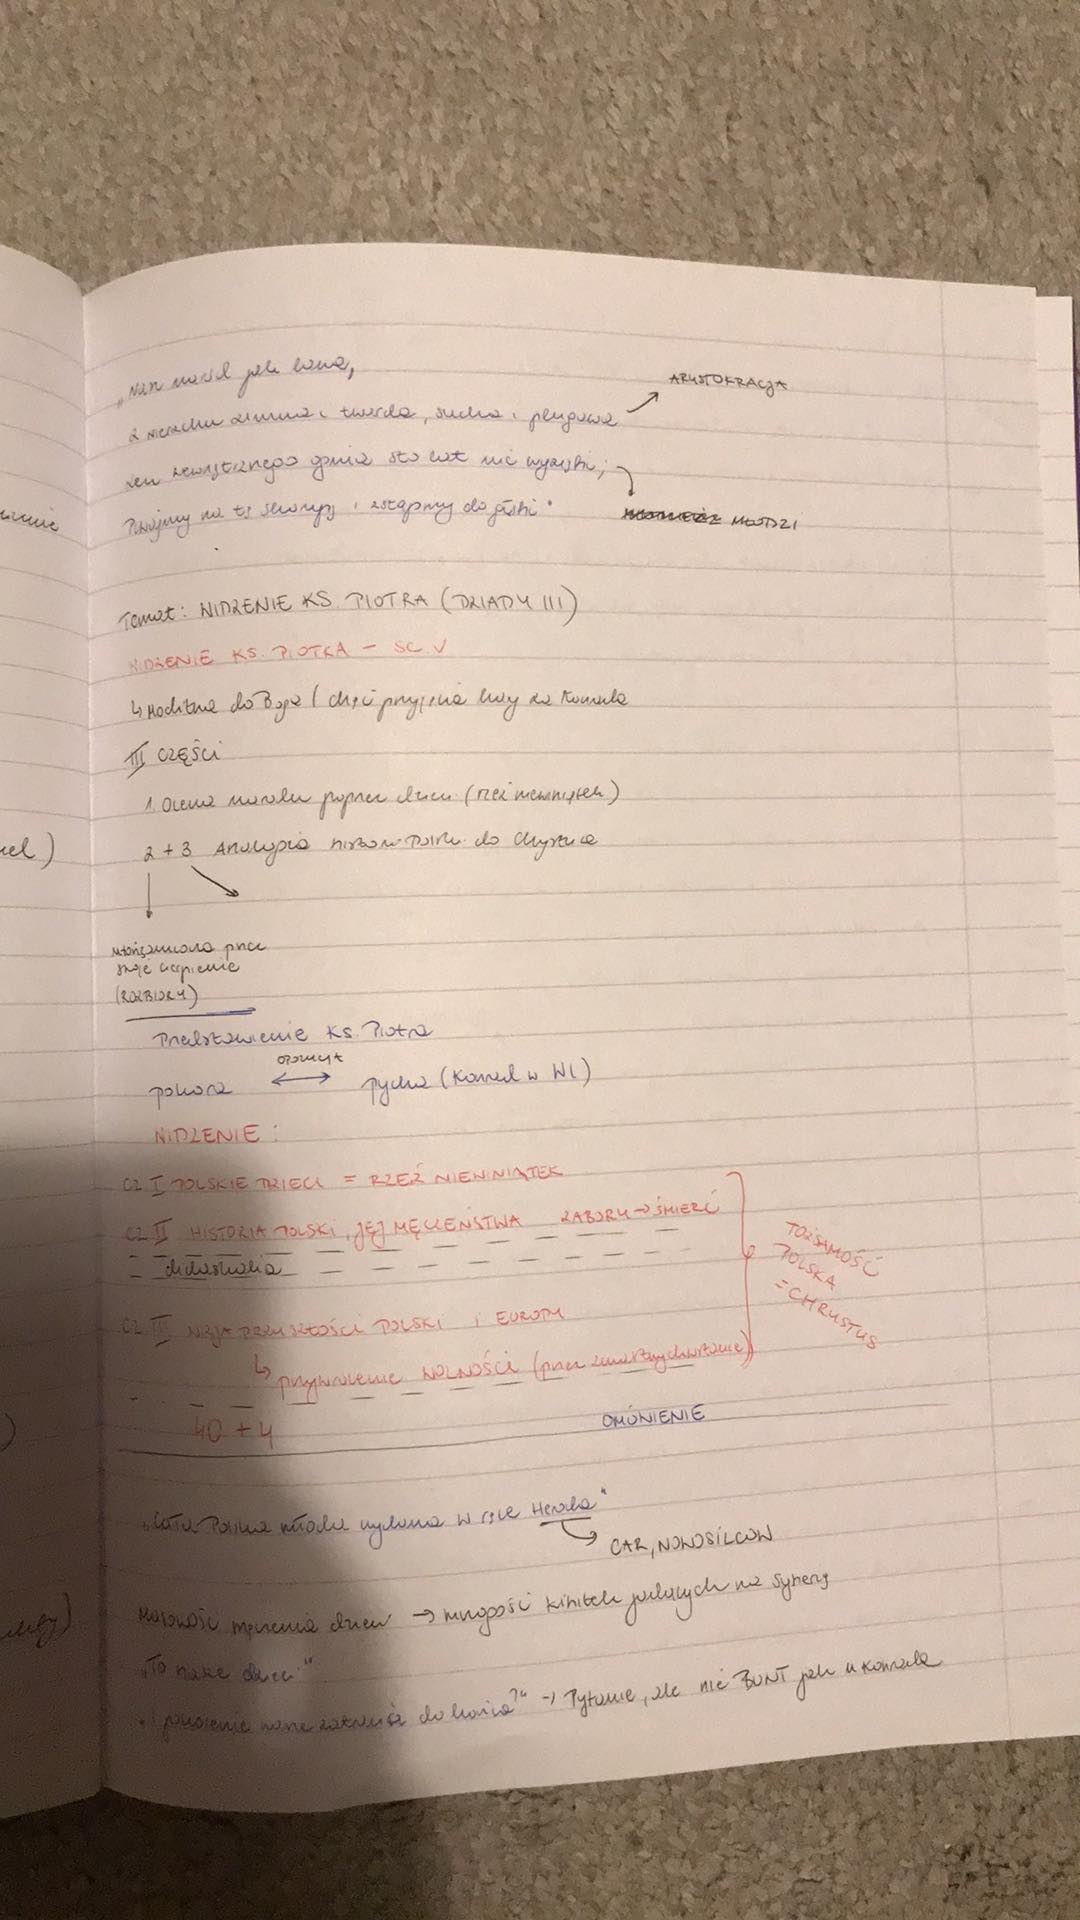 „Nasz naród jak lawa,
Z wierzchu zimna i twarda, sucha i plugawa → ARYSTOKRACJA
Lecz wewnętrznego ognia sto lat nie wyziębi;
Plwajmy na tę skorupę i zstąpmy do głębi"
MŁODZI
Temat: WIDZENIE KS. PIOTRA (DZIADY III)
WIDZENIE KS. PIOTRA – SC. V
↳ Modlitwa do Boga / chęć przyjęcia kary za Konrada
III CZĘŚCI
1. Ocena narodu poprzez dzieci (rzeź niewiniątek)
2 + 3 Analogia histor. Polski do Chrystusa
przez
swoje cierpienie
(ROZBIORY)
Przedstawienie KS. Piotra
pokora ↔ pycha (Konrad w WI)
WIDZENIE :
CZ I POLSKIE DZIECI = RZEŹ NIEWINIĄTEK
CZ II HISTORIA POLSKI, JEJ MĘCZEŃSTWA ZABORY → ŚMIERĆ
didaskalia
CZ III WIZJA PRZYSZŁOŚCI POLSKI I EUROPY
↳ przywrócenie WOLNOŚCI (przez zmartwychwstanie)
TOŻSAMOŚĆ
POLSKA
= CHRYSTUS
40 + 4
OMÓWIENIE
„Cała Polska młoda wydana w ręce Heroda"
CAR, NOWOSILCOW
męczenia dzieci → mnogość kibitek jadących na Syberię
„To nasze dzieci"
„I pokolenie nasze zatracisz do końca?" → Pytanie, ale nie BUNT jak u Konrada